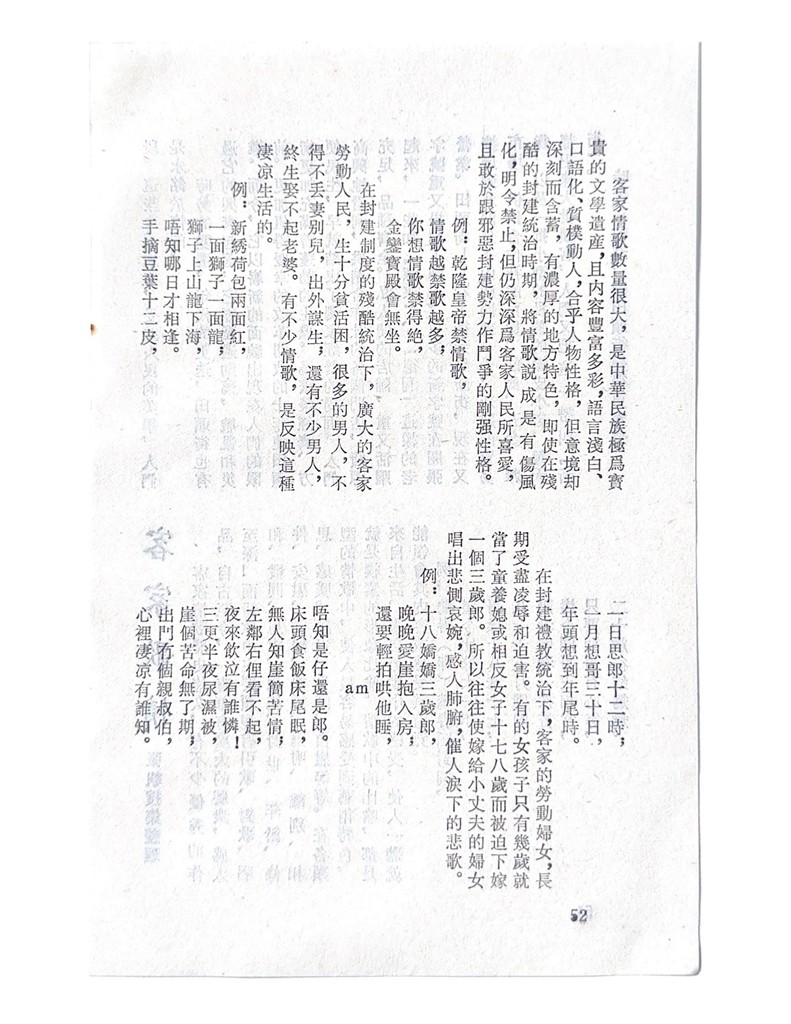 客家情歌數量很大，是中華民族極爲寳
貴的文學遺産，且内容豐富多彩，語言淺白、
口語化、質樸動人，合乎人物性格，但意境却
深刻而含蓄，有濃厚的地方特色，即使在殘
酷的封建統治時期，將情歌説成是有傷風
化，明令禁止，但仍深深爲客家人民所喜愛，
且敢於跟邪惡封建勢力作鬥爭的剛强性格。
例：乾隆皇帝禁情歌，
情歌越禁歌越多，
你想情歌禁得絶，
金鑾寶殿會無坐。
在封建制度的殘酷統治下，廣大的客家
勞動人民，生十分貧活困，很多的男人，不
得不丢妻別兒，出外謀生，還有不少男人，
終生娶不起老婆。有不少情歌，是反映這種
凄凉生活的。
例：新綉荷包兩面紅，
一面獅子一面龍，
獅子上山龍下海，
唔知哪日才相逢。
手摘豆葉十二皮，
二日思郎十二時，
一月想哥三十日，
年頭想到年尾時。
在封建禮教統治下，客家的勞動婦女，長
期受盡凌辱和迫害。有的女孩子只有幾歲就
當了童養媳或相反女子十七八歲而被迫下嫁
一個三歲郎。所以往往使嫁給小丈夫的婦女
唱出悲惻哀婉，感人肺腑，催人淚下的悲歌。
例：十八嬌嬌三歲郎，
晚晚愛崖抱入房，
還要輕拍哄他睡，
am
唔知是仔還是郎。
床頭食飯床尾眠，
無人知崖簡苦情，
左鄰右俚看不起，
夜來飲泣有誰憐！
三更半夜尿濕被，
崖個苦命無了期，
出門冇個親叔伯，
心裡凄凉有誰知。
52